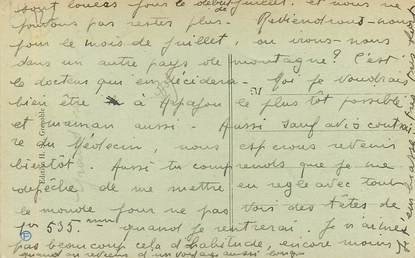 sont loués pour le début juillet. et nous ne
pouvons pas rester plus. Redeviendrons-nous
pour le mois de juillet, ou irons-nous
dans un autre pays de montagne? C'est
le docteur qui en décidera. Moi je voudrais
bien être à Arpajon le plus tôt possible
et maman aussi. Aussi sauf avis contrai
re du Médecin, nous espérons revenir
bientôt. Aussi tu comprends que je me
dépêche de me mettre en règle avec tout
le monde pour ne pas voir des têtes de
535. quand je rentrerai. Je n'aime
pas beaucoup cela d'habitude, encore moins
quand on revient d'un voyage aussi long.